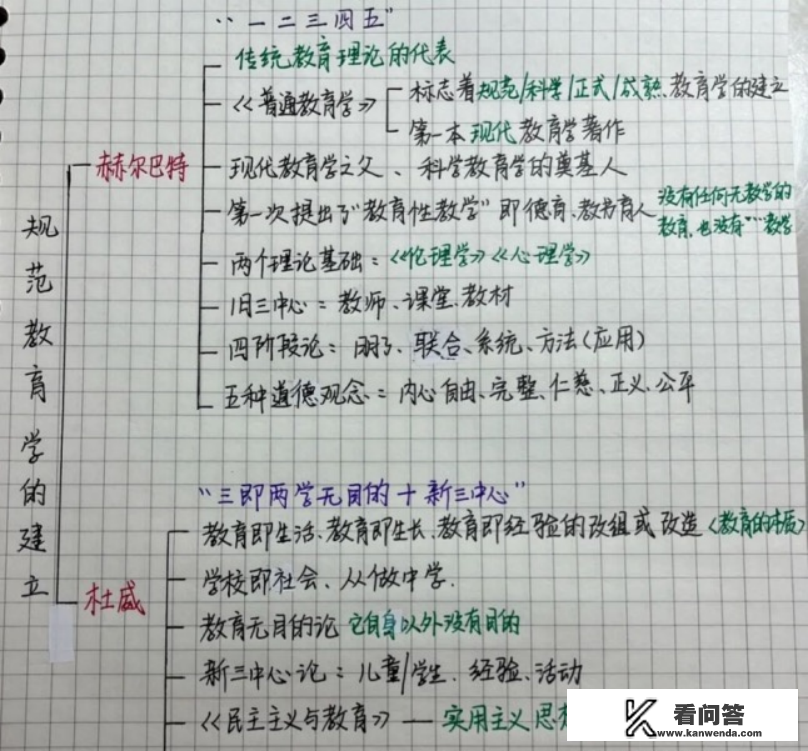 “一二三四五”
传统教育理论的代表
《普通教育学》
标志着规范/科学/正式/成熟教育学的建立
第一本现代教育学著作
赫尔巴特
现代教育学之父、科学教育学的奠基人
第一次提出了"教育性教学"即德育、教书育人
没有任何无教学的
教育,也没有……教学
两个理论基础:《伦理学》《心理学》
旧三中心:教师、课堂、教材
四阶段论:明了、联合、系统、方法(应用)
五种道德观念:内心自由、完整、仁慈、正义、公平
规范教育学的建立
“三即两学无目的+新三中心”
教育即生活、教育即生长、教育即经验的改组或改造《教育的本质》
学校即社会、从做中学.
杜威
教育无目的论 它自身以外没有目的
新三中心论:儿童/学生.经验、活动
《民主主义与教育》——实用主义思
看问答
www.kanwenda.com